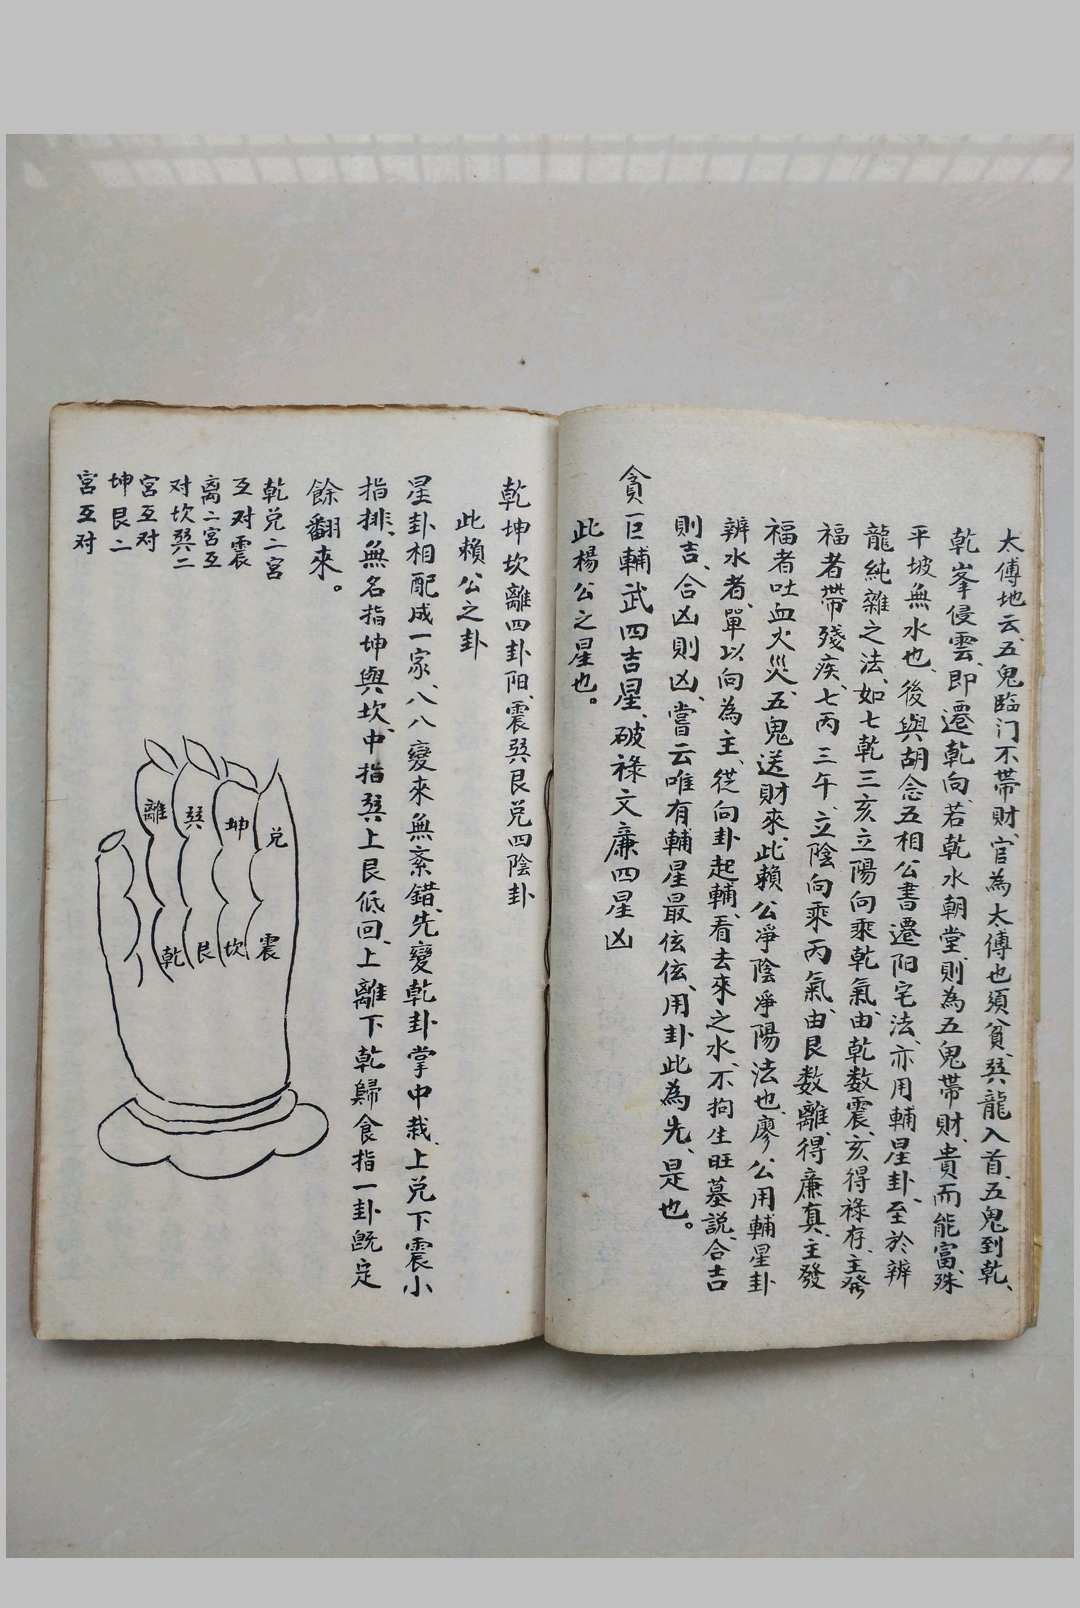 太傅地云、五鬼臨门不帶財、官為太傅也須貧、巽龍入首、五鬼到乾、
乾峯侵雲、即遷乾向、若乾水朝堂、則為五鬼帶財、貴而能富、殊
平坡無水也、後與胡念五相公書遷阳宅法、亦用輔星卦、至於辨
龍純雜之法、如七乾三亥立陽向乘乾氣由、乾数震、亥得祿存、主發
福者帶殘疾、七丙三午、立陰向乘丙氣、由艮数離、得廉真、主發
福者吐血火災、五鬼送財來、此賴公凈陰凈陽法也、廖公用輔星卦
辨水者、單以向為主、從向卦起輔、看去來之水、不拘生旺墓説、合吉
則吉、合凶則凶、嘗云唯有輔星最伭伭、用卦此為先、是也。
貪巨輔武四吉星、破祿文廉四星凶
此楊公之星也。
乾坤坎離四卦阳、震巽艮兑四陰卦
此賴公之卦
星卦相配成一家、八八變來無紊錯、先變乾卦掌中栽、上兑下震小
指排、無名指坤與坎、中指巽上艮低回、上離下乾歸食指一卦既定
餘翻來。
乾兑二宮
互对震
离二宮互
对坎巽二
宮互对
坤艮二
宮互对
離 巽 坤 兑
乾 艮 坎 震